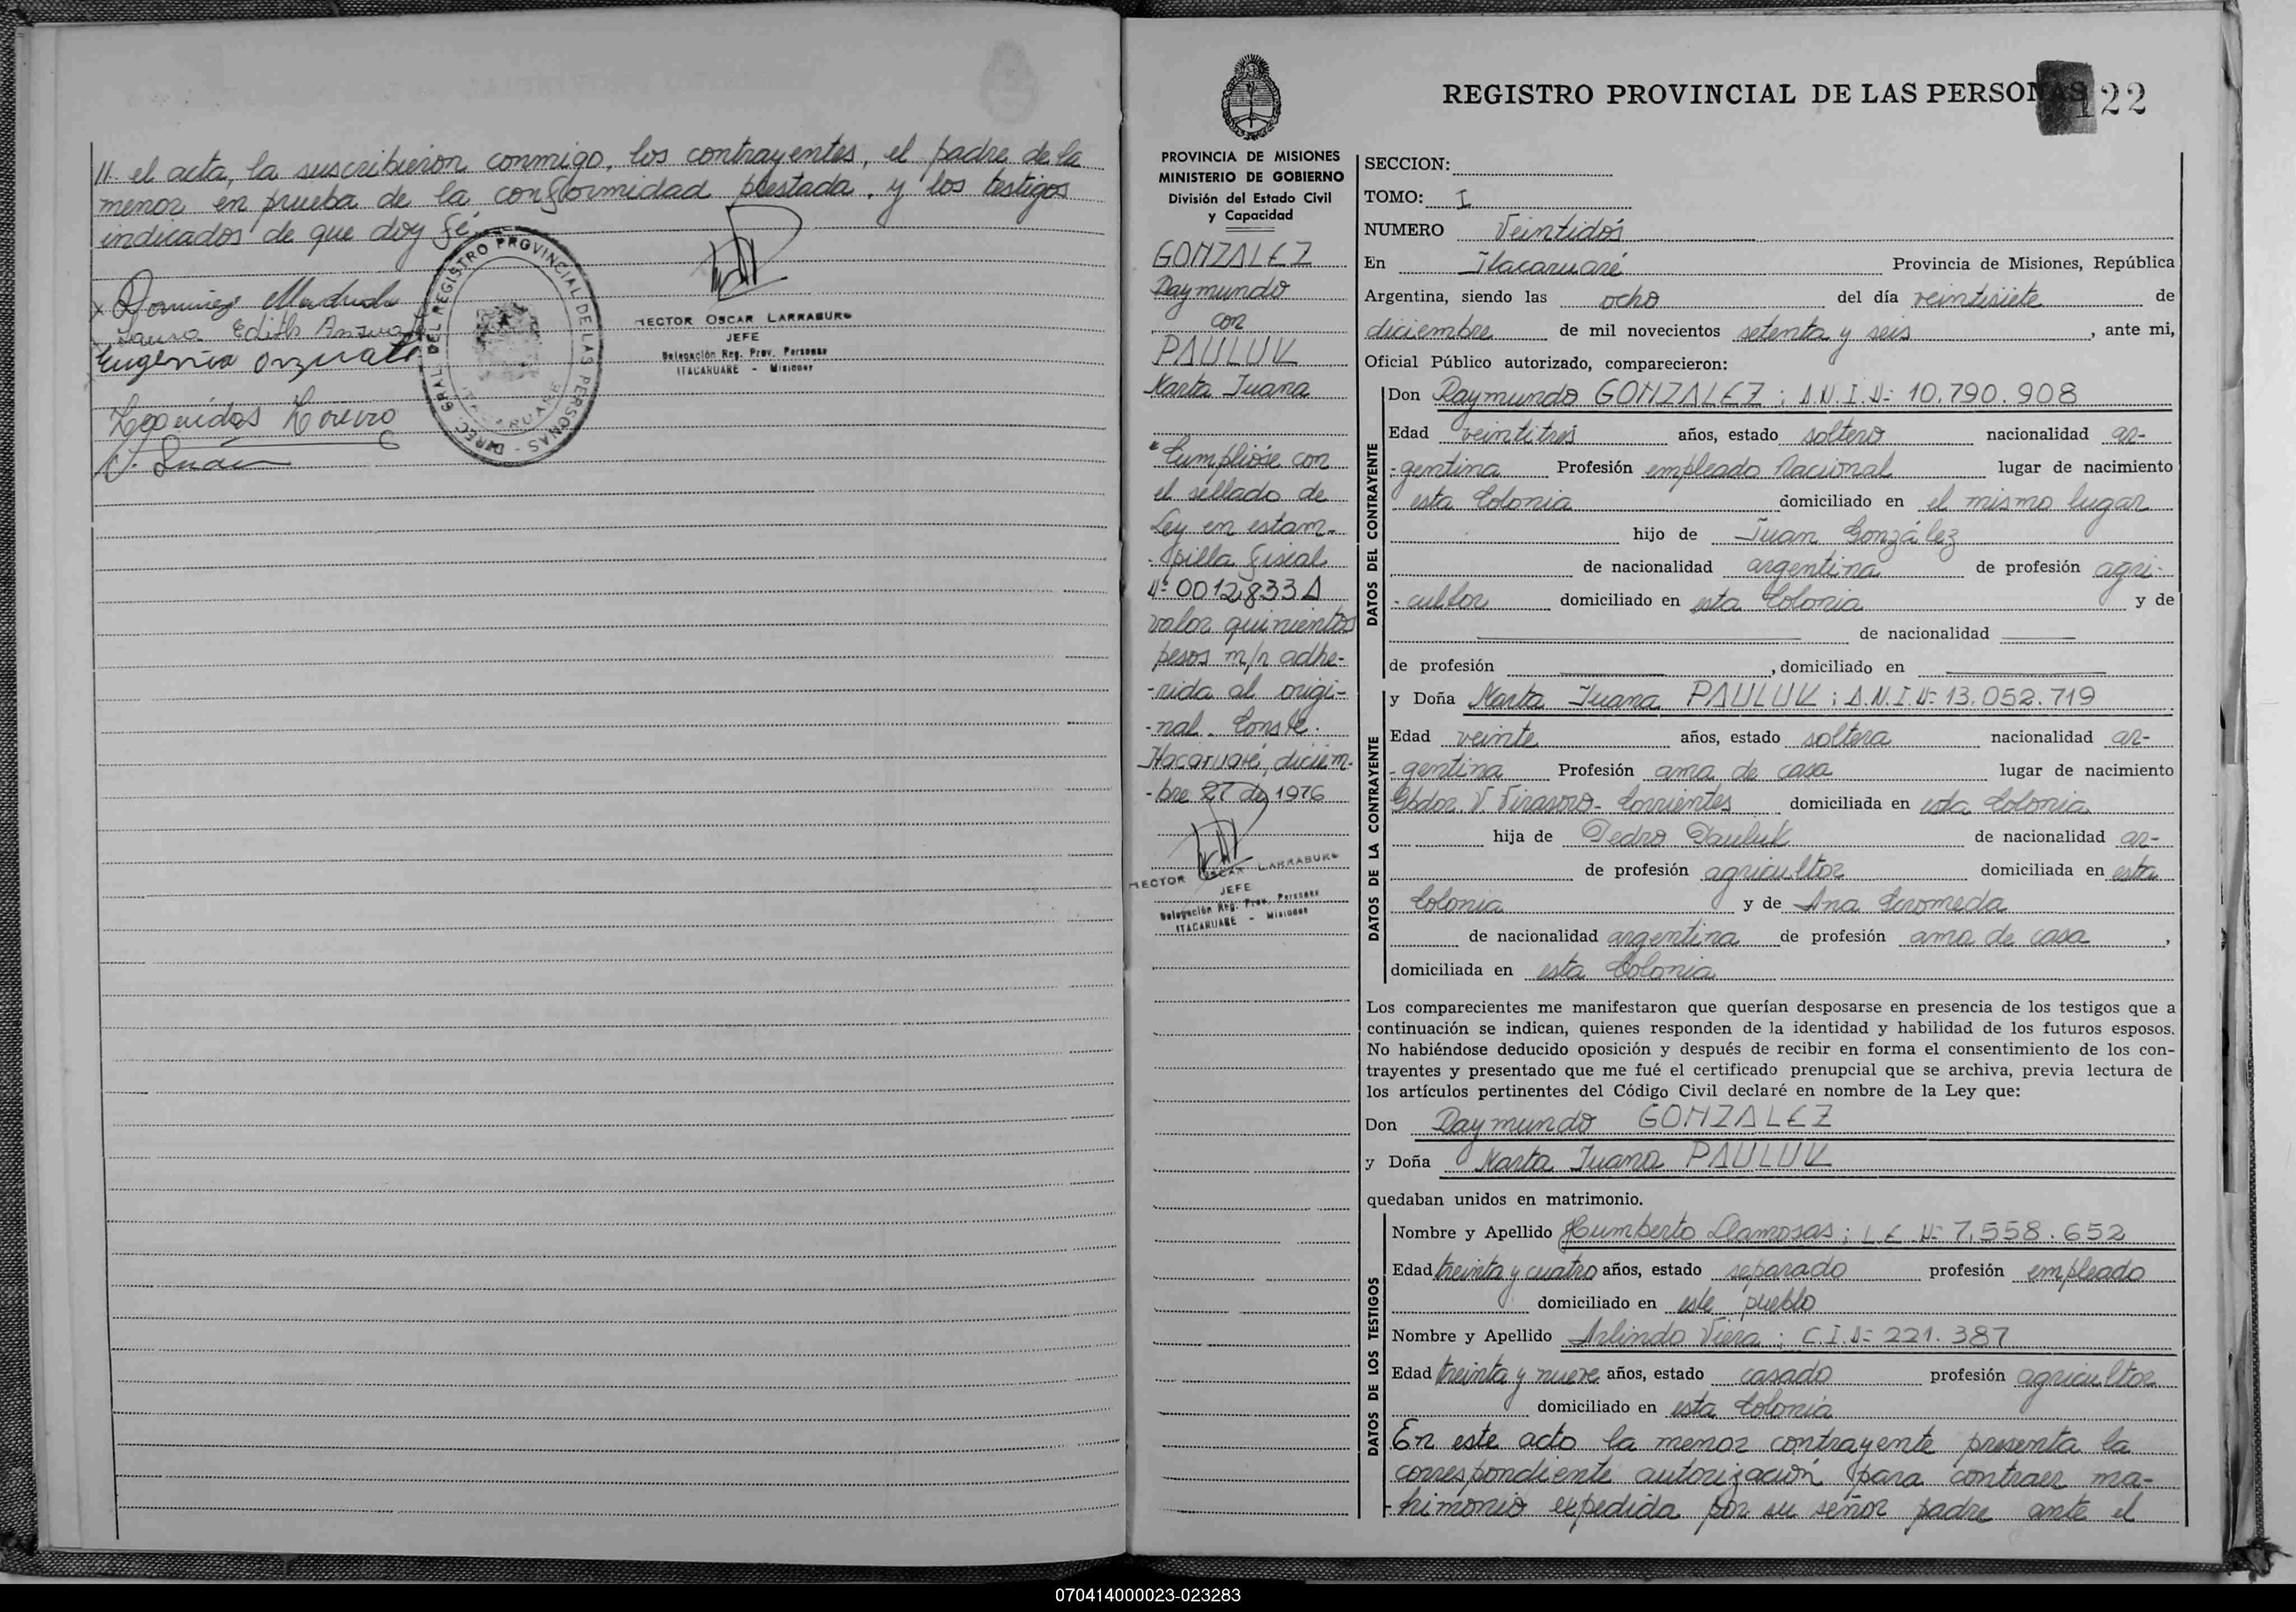 // el acta, la suscribieron conmigo, los contrayentes, el padre de la
menor en prueba de la conformidad prestada, y los testigos
indicados de que doy fé.
DIREC. GRAL. DEL REGISTRO PROVINCIAL DE LAS PERSONAS
ITACARUARE
HECTOR OSCAR LARRABURU
JEFE
Delegación Reg. Prov. Personas
ITACARUARE - Misiones
Laura Edith
Eugenia
Leonidas
REGISTRO PROVINCIAL DE LAS PERSONAS
122
PROVINCIA DE MISIONES
MINISTERIO DE GOBIERNO
División del Estado Civil
y Capacidad
GONZALEZ
Raymundo
con
PAULUK
Marta Juana
* Cumplióse con
el sellado de
Ley en estam-
-pilla fiscal
Nº 0012833 A
valor quinientos
pesos m/n adhe-
-rida al origi-
-nal. Conste.
Itacaruaré, diciem-
-bre 27 de 1976
HECTOR OSCAR LARRABURU
JEFE
Delegación Reg. Prov. Personas
ITACARUARE - Misiones
SECCION:
TOMO: I
NUMERO Veintidós
En Itacaruaré Provincia de Misiones, República
Argentina, siendo las ocho del día veintisiete de
diciembre de mil novecientos setenta y seis, ante mi,
Oficial Público autorizado, comparecieron:
DATOS DEL CONTRAYENTE
Don Raymundo GONZALEZ; D.N.I. Nº 10.790.908
Edad veintitrés años, estado soltero nacionalidad ar-
-gentina Profesión empleado Nacional lugar de nacimiento
esta Colonia domiciliado en el mismo lugar
hijo de Juan González
de nacionalidad argentina de profesión agri-
-cultor domiciliado en esta Colonia y de
de nacionalidad
de profesión , domiciliado en
DATOS DE LA CONTRAYENTE
y Doña Marta Juana PAULUK; D.N.I. Nº 13.052.719
Edad veinte años, estado soltera nacionalidad ar-
-gentina Profesión ama de casa lugar de nacimiento
Gbdor. V. Virasoro - Corrientes domiciliada en esta Colonia
hija de Pedro Pauluk de nacionalidad ar-
de profesión agricultor domiciliada en esta
Colonia y de Ana Coromeda
de nacionalidad argentina de profesión ama de casa,
domiciliada en esta Colonia
Los comparecientes me manifestaron que querían desposarse en presencia de los testigos que a
continuación se indican, quienes responden de la identidad y habilidad de los futuros esposos.
No habiéndose deducido oposición y después de recibir en forma el consentimiento de los con-
trayentes y presentado que me fué el certificado prenupcial que se archiva, previa lectura de
los artículos pertinentes del Código Civil declaré en nombre de la Ley que:
Don Raymundo GONZALEZ
y Doña Marta Juana PAULUK
quedaban unidos en matrimonio.
DATOS DE LOS TESTIGOS
Nombre y Apellido Humberto Llamosas; L.E. Nº 7.558.652
Edad treinta y cuatro años, estado separado profesión empleado
domiciliado en este pueblo
Nombre y Apellido Arlindo Viera; C.I. Nº 221.387
Edad treinta y nueve años, estado casado profesión agricultor
domiciliado en esta Colonia
En este acto la menor contrayente presenta la
correspondiente autorización para contraer ma-
-trimonio expedida por su señor padre ante el
070414000023-023283